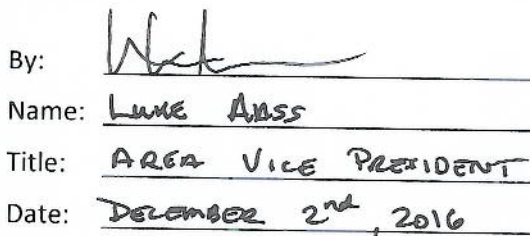 By:
Name: LUKE AASS
Title: AREA VICE PRESIDENT
Date: DECEMBER 2nd, 2016